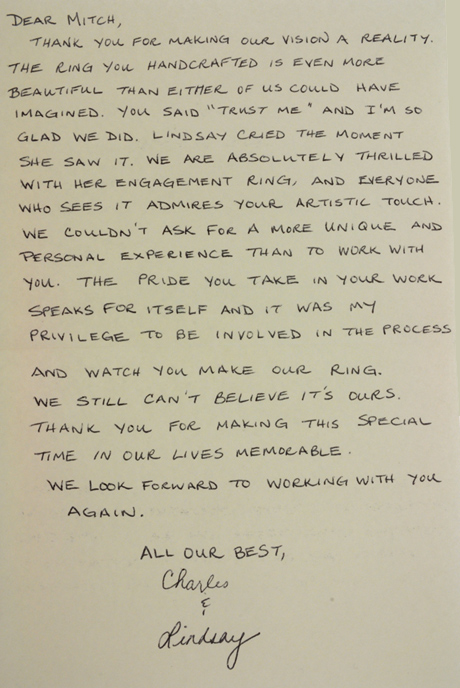 DEAR MITCH,
THANK YOU FOR MAKING OUR VISION A REALITY.
THE RING YOU HANDCRAFTED IS EVEN MORE
BEAUTIFUL THAN EITHER OF US COULD HAVE
IMAGINED. YOU SAID "TRUST ME" AND I'M SO
GLAD WE DID. LINDSAY CRIED THE MOMENT
SHE SAW IT. WE ARE ABSOLUTELY THRILLED
WITH HER ENGAGEMENT RING, AND EVERYONE
WHO SEES IT ADMIRES YOUR ARTISTIC TOUCH.
WE COULDN'T ASK FOR A MORE UNIQUE AND
PERSONAL EXPERIENCE THAN TO WORK WITH
YOU. THE PRIDE YOU TAKE IN YOUR WORK
SPEAKS FOR ITSELF AND IT WAS MY
PRIVILEGE TO BE INVOLVED IN THE PROCESS
AND WATCH YOU MAKE OUR RING.
WE STILL CAN'T BELIEVE IT'S OURS.
THANK YOU FOR MAKING THIS SPECIAL
TIME IN OUR LIVES MEMORABLE.
WE LOOK FORWARD TO WORKING WITH YOU
AGAIN.
ALL OUR BEST,
Charles
&
Lindsay